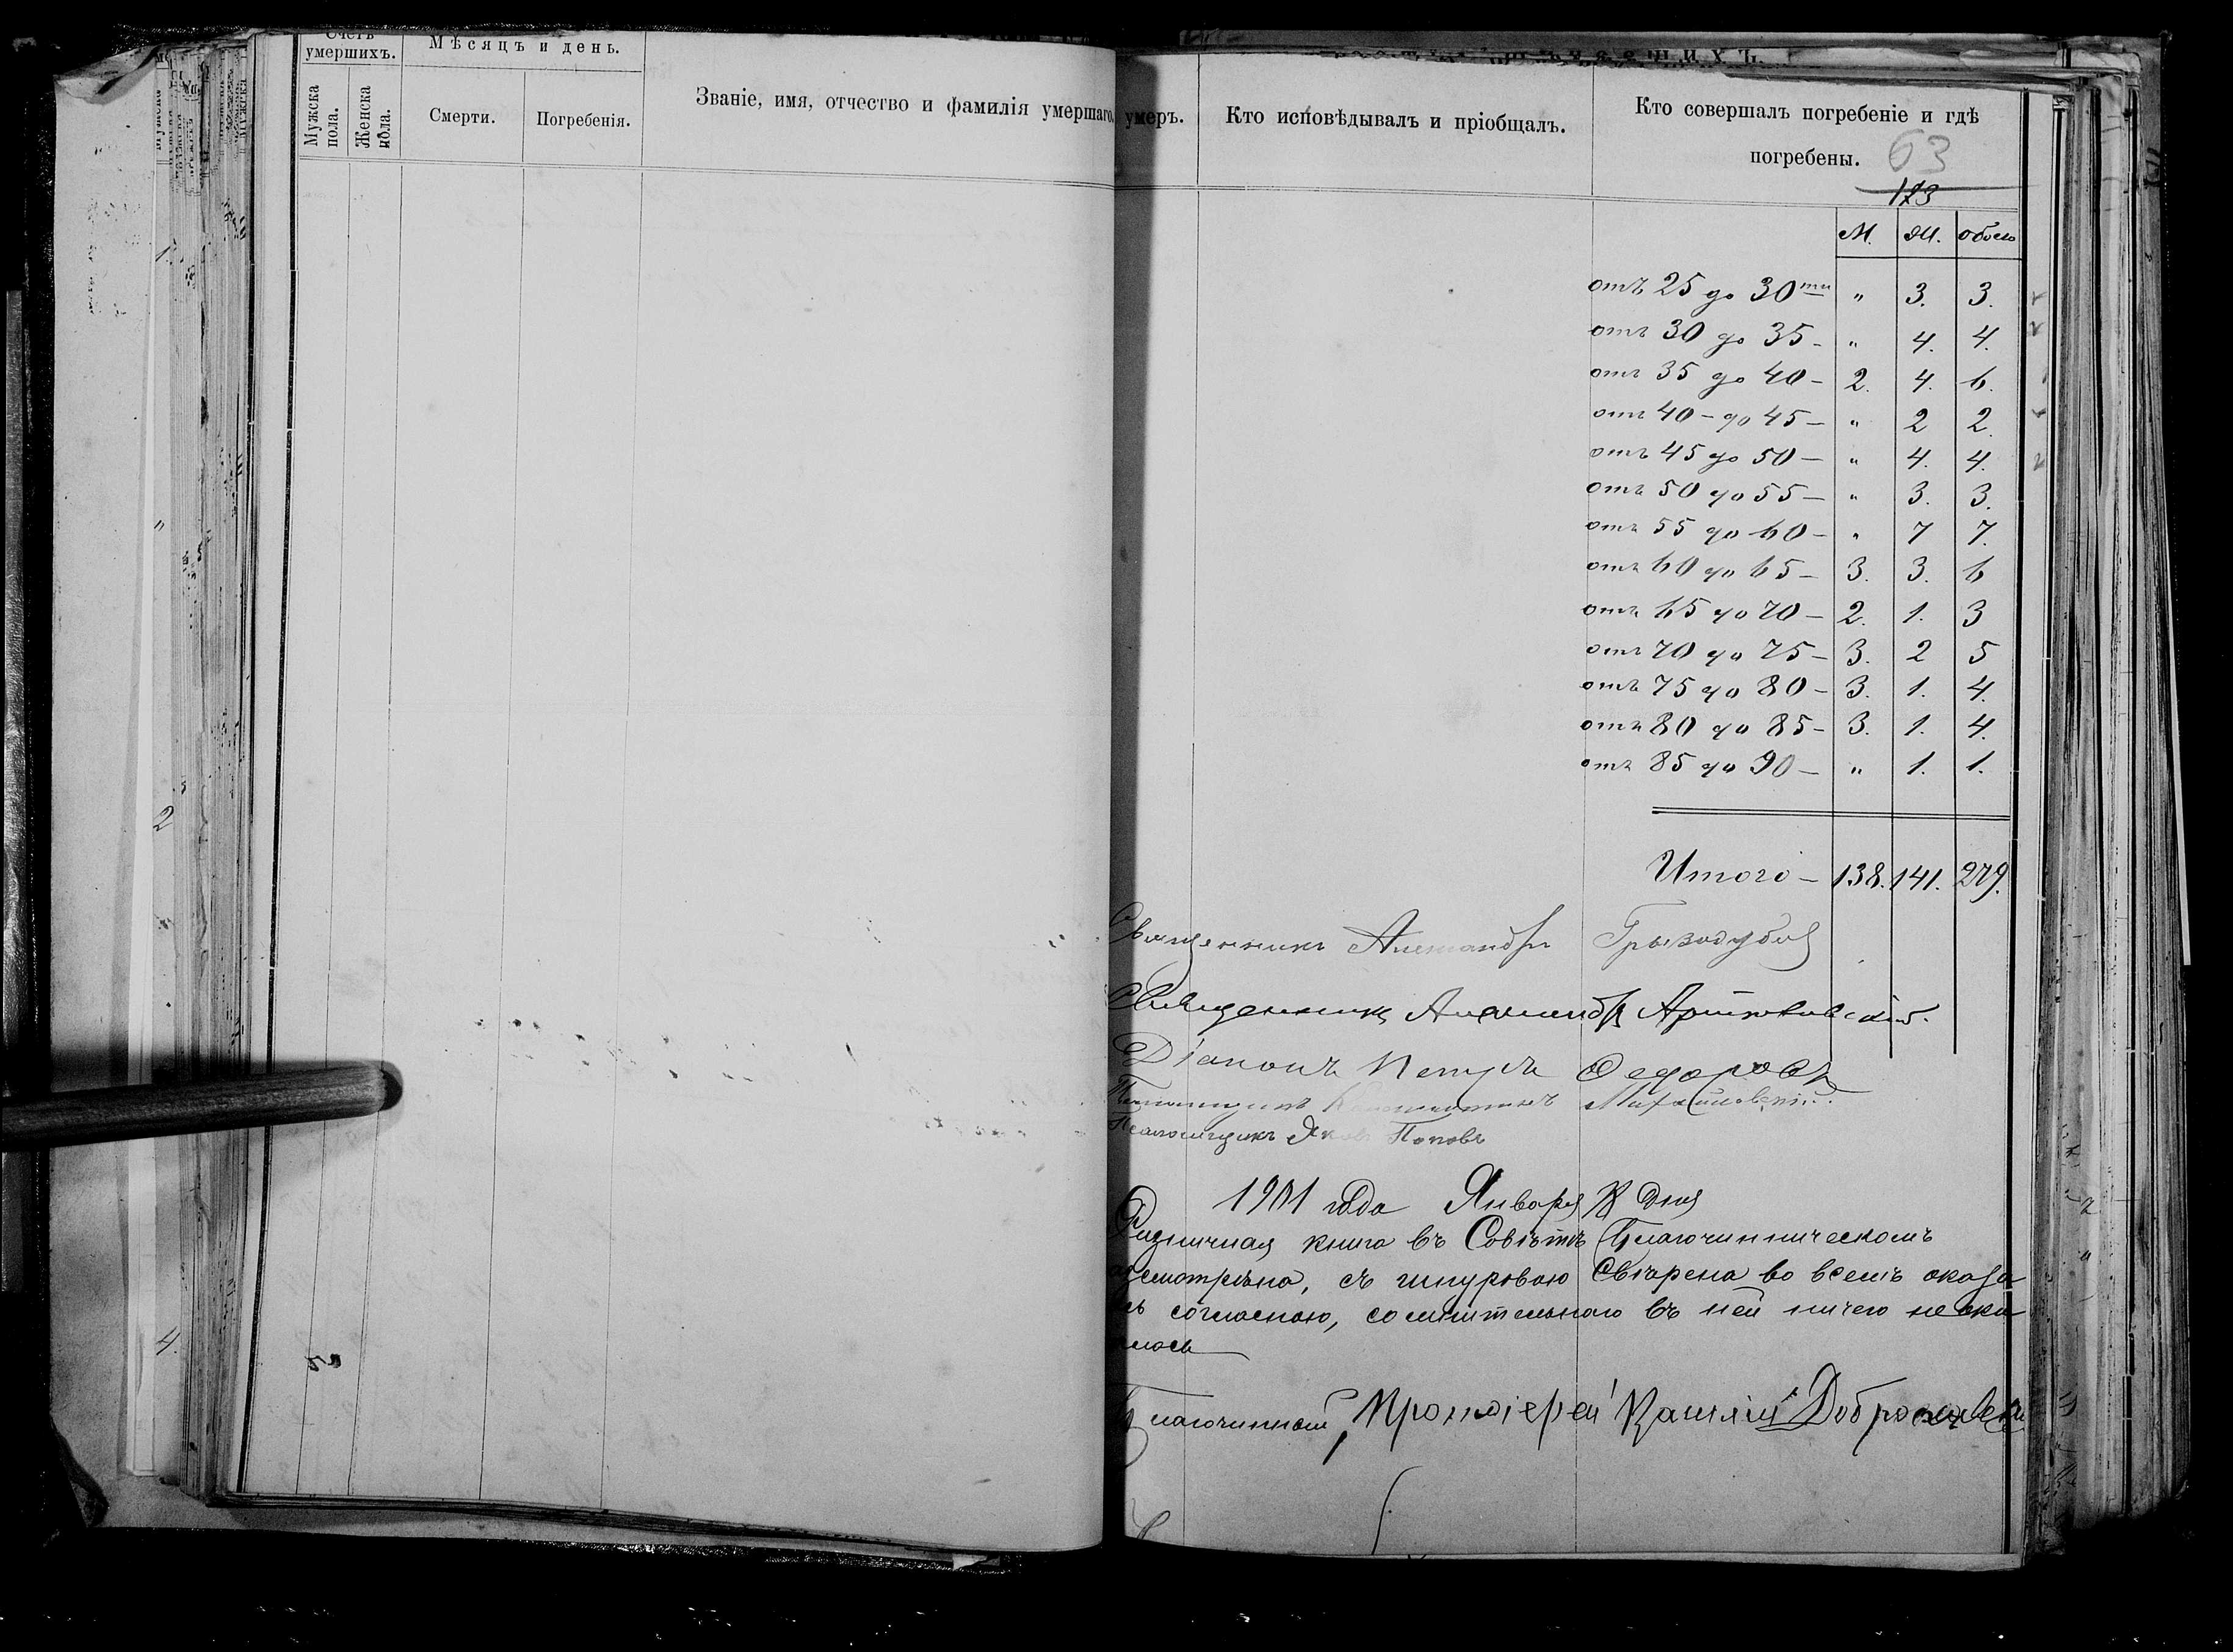 Счетъ умершихъ.
Мѣсяцъ и день.
Мужска пола.
Женска пола.
Смерти.
Погребенія.
Званіе, имя, отчество и фамилія умершаго.
умеръ.
Кто исповѣдывалъ и пріобщалъ.
Кто совершалъ погребеніе и гдѣ
погребены.
63
173
М. Ж. обоего
отъ 25 до 30ти " 3. 3.
отъ 30 до 35 - " 4. 4.
отъ 35 до 40 - 2. 4. 6.
отъ 40 - до 45 - " 2 2.
отъ 45 до 50 - " 4. 4.
отъ 50 до 55 - " 3. 3.
отъ 55 до 60 - " 7 7.
отъ 60 до 65 - 3. 3. 6
отъ 65 до 70 - 2. 1. 3
отъ 70 до 75 - 3. 2 5
отъ 75 до 80 - 3. 1. 4.
отъ 80 до 85 - 3. 1. 4.
отъ 85 до 90 - " 1. 1.
Итого - 138. 141. 279.
Священникъ Александръ Грызодубов
Священникъ Александръ
Діаконъ Петръ Федоровъ
Псаломщикъ Константинъ Михайловскій.
Псаломщикъ Яковъ Поповъ
1901 года Января дня
книга въ Совѣтѣ Благочинническомъ
смотрѣна, съ шнуровою свѣрена во всемъ оказа
сь согласною, сомнительнаго въ ней ничего не ока
лось
Благочинный, Протоіерей Василій